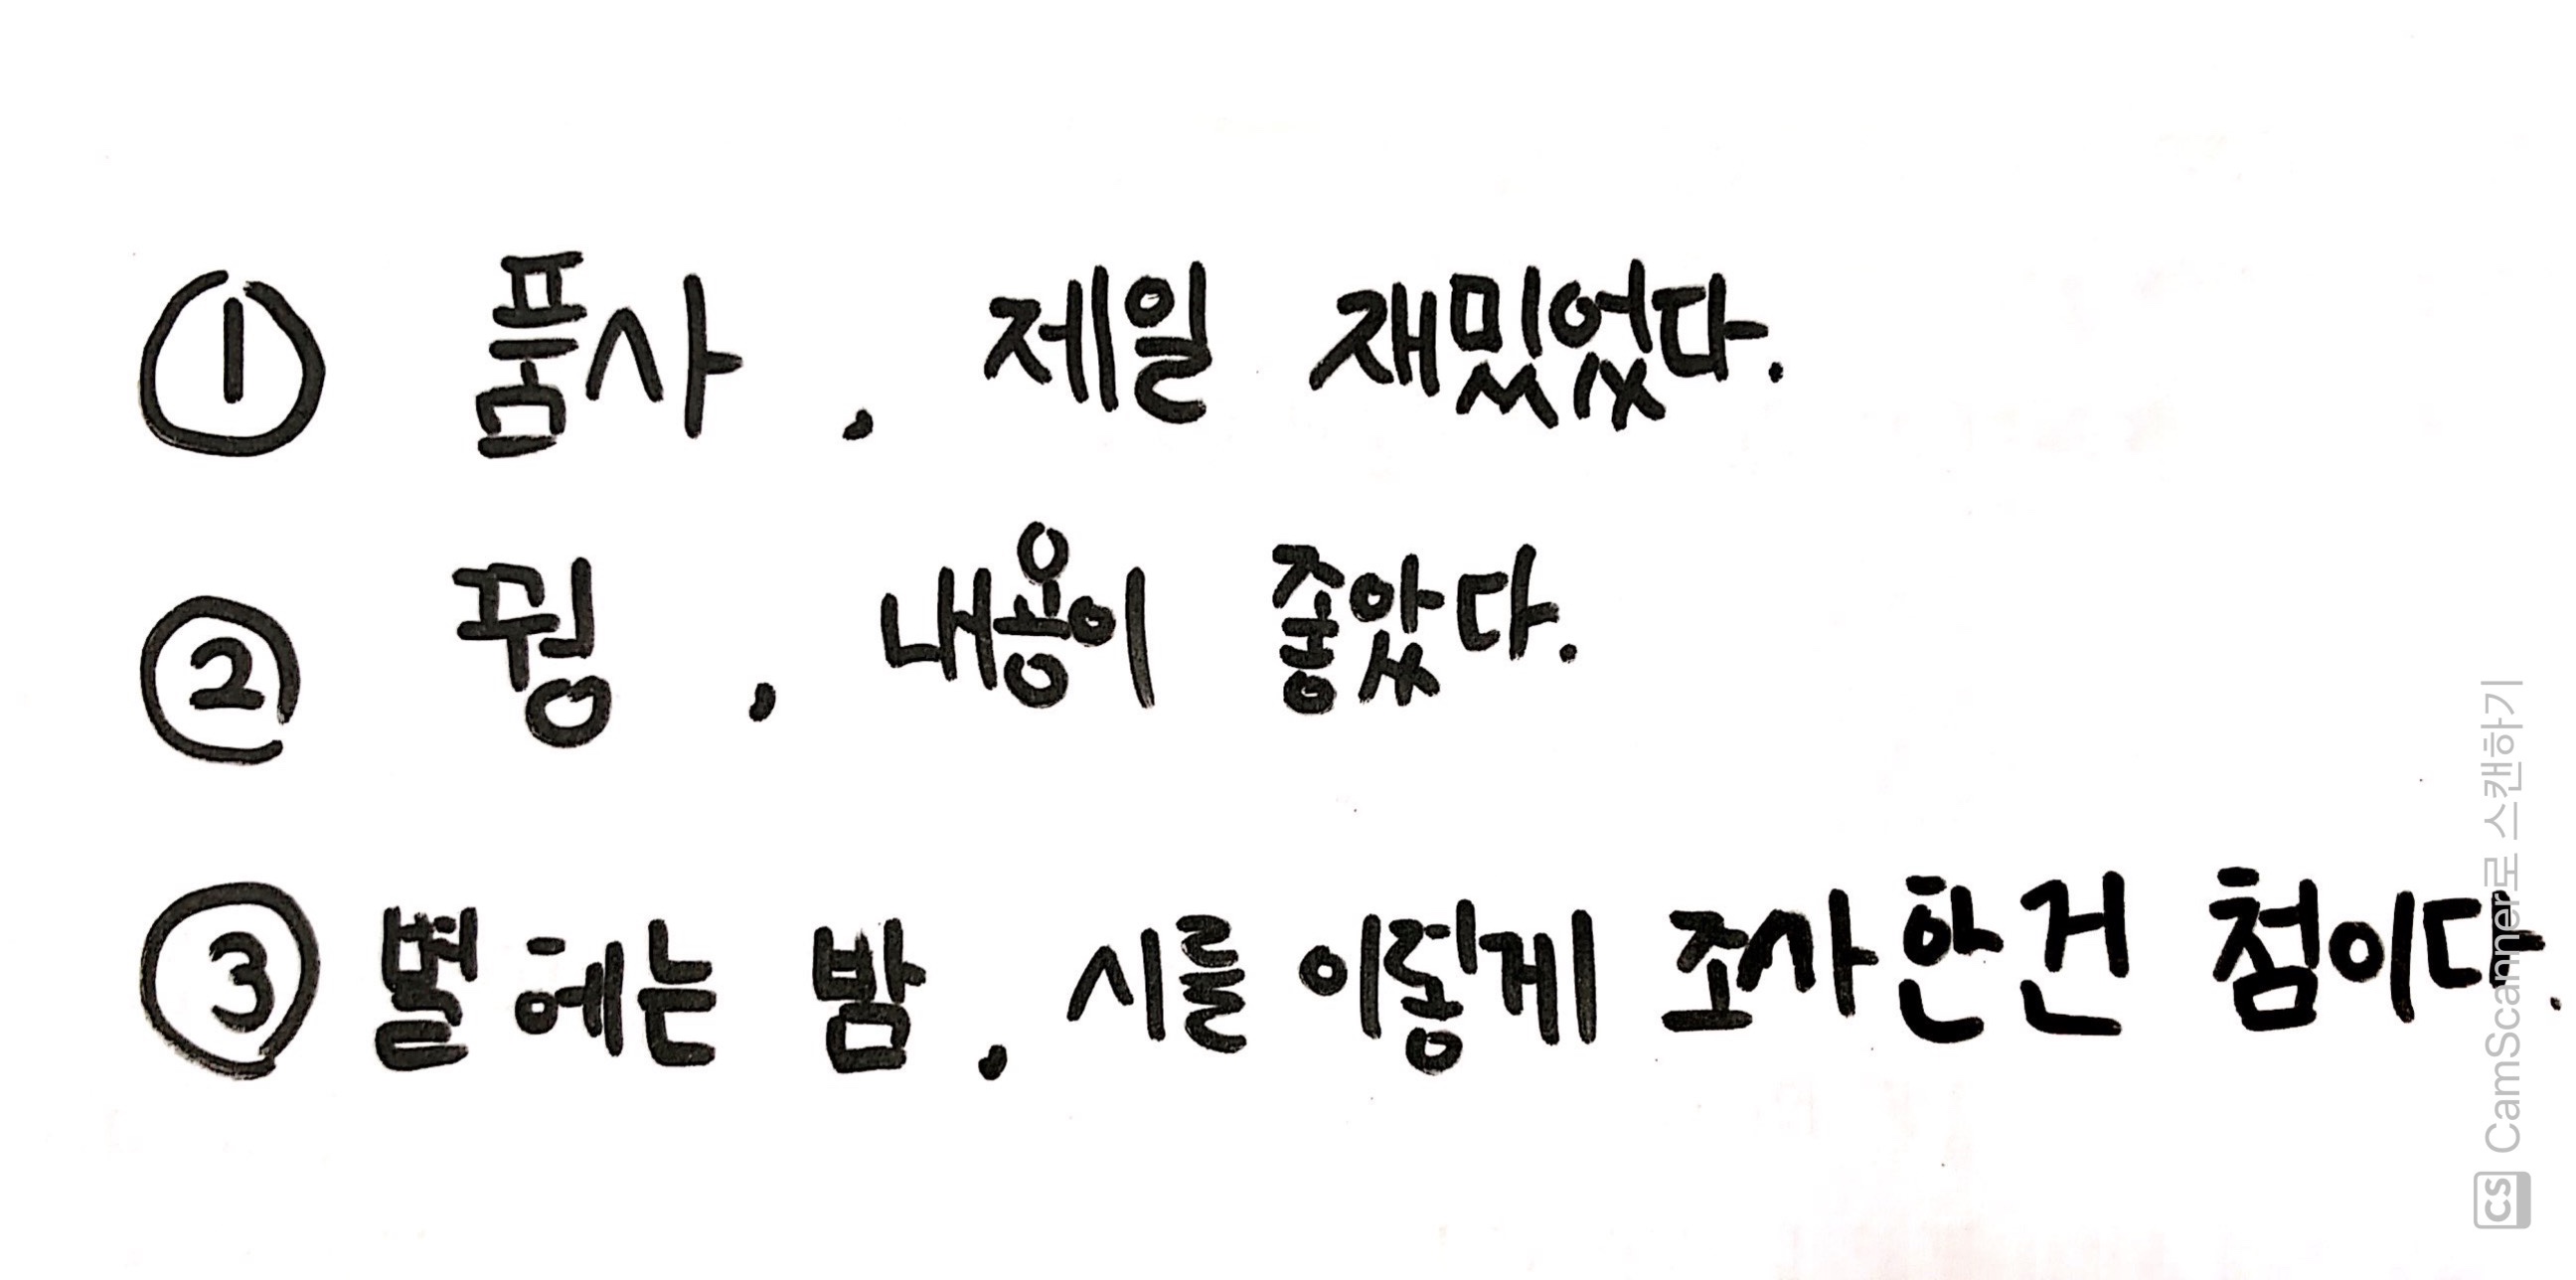 ① 품사, 제일 재밌었다.
② 꿩, 내용이 좋았다.
③ 별 헤는 밤, 시를 이렇게 조사한건 첨이다.
CS CamScanner로 스캔하기